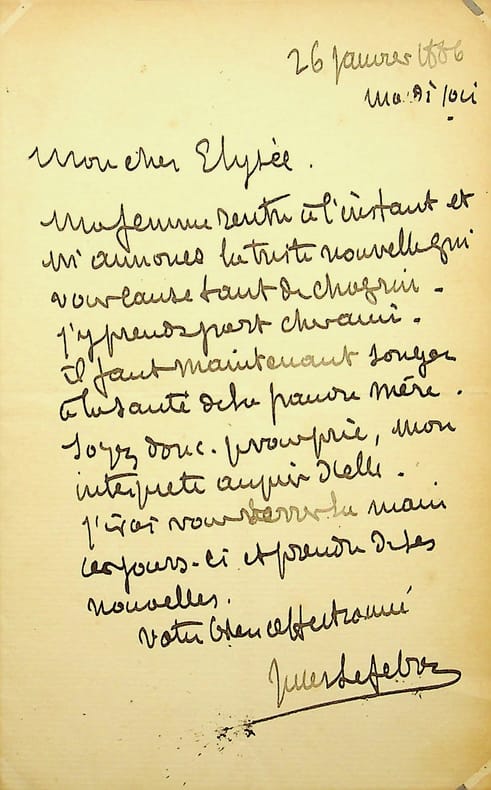 26 janvier 1886
mardi soir
Mon cher Elysée.
Ma femme rentre à l'instant et
m'annonce la triste nouvelle qui
vous cause tant de chagrin.
j'y prends part cher ami.
il faut maintenant songer
à la santé de la pauvre mère.
Soyez donc. je vous prie, mon
interprète auprès d'elle.
j'irai vous serrer la main
ces jours-ci et prendre de ses
nouvelles.
votre bien affectionné
Jules Lefebvre